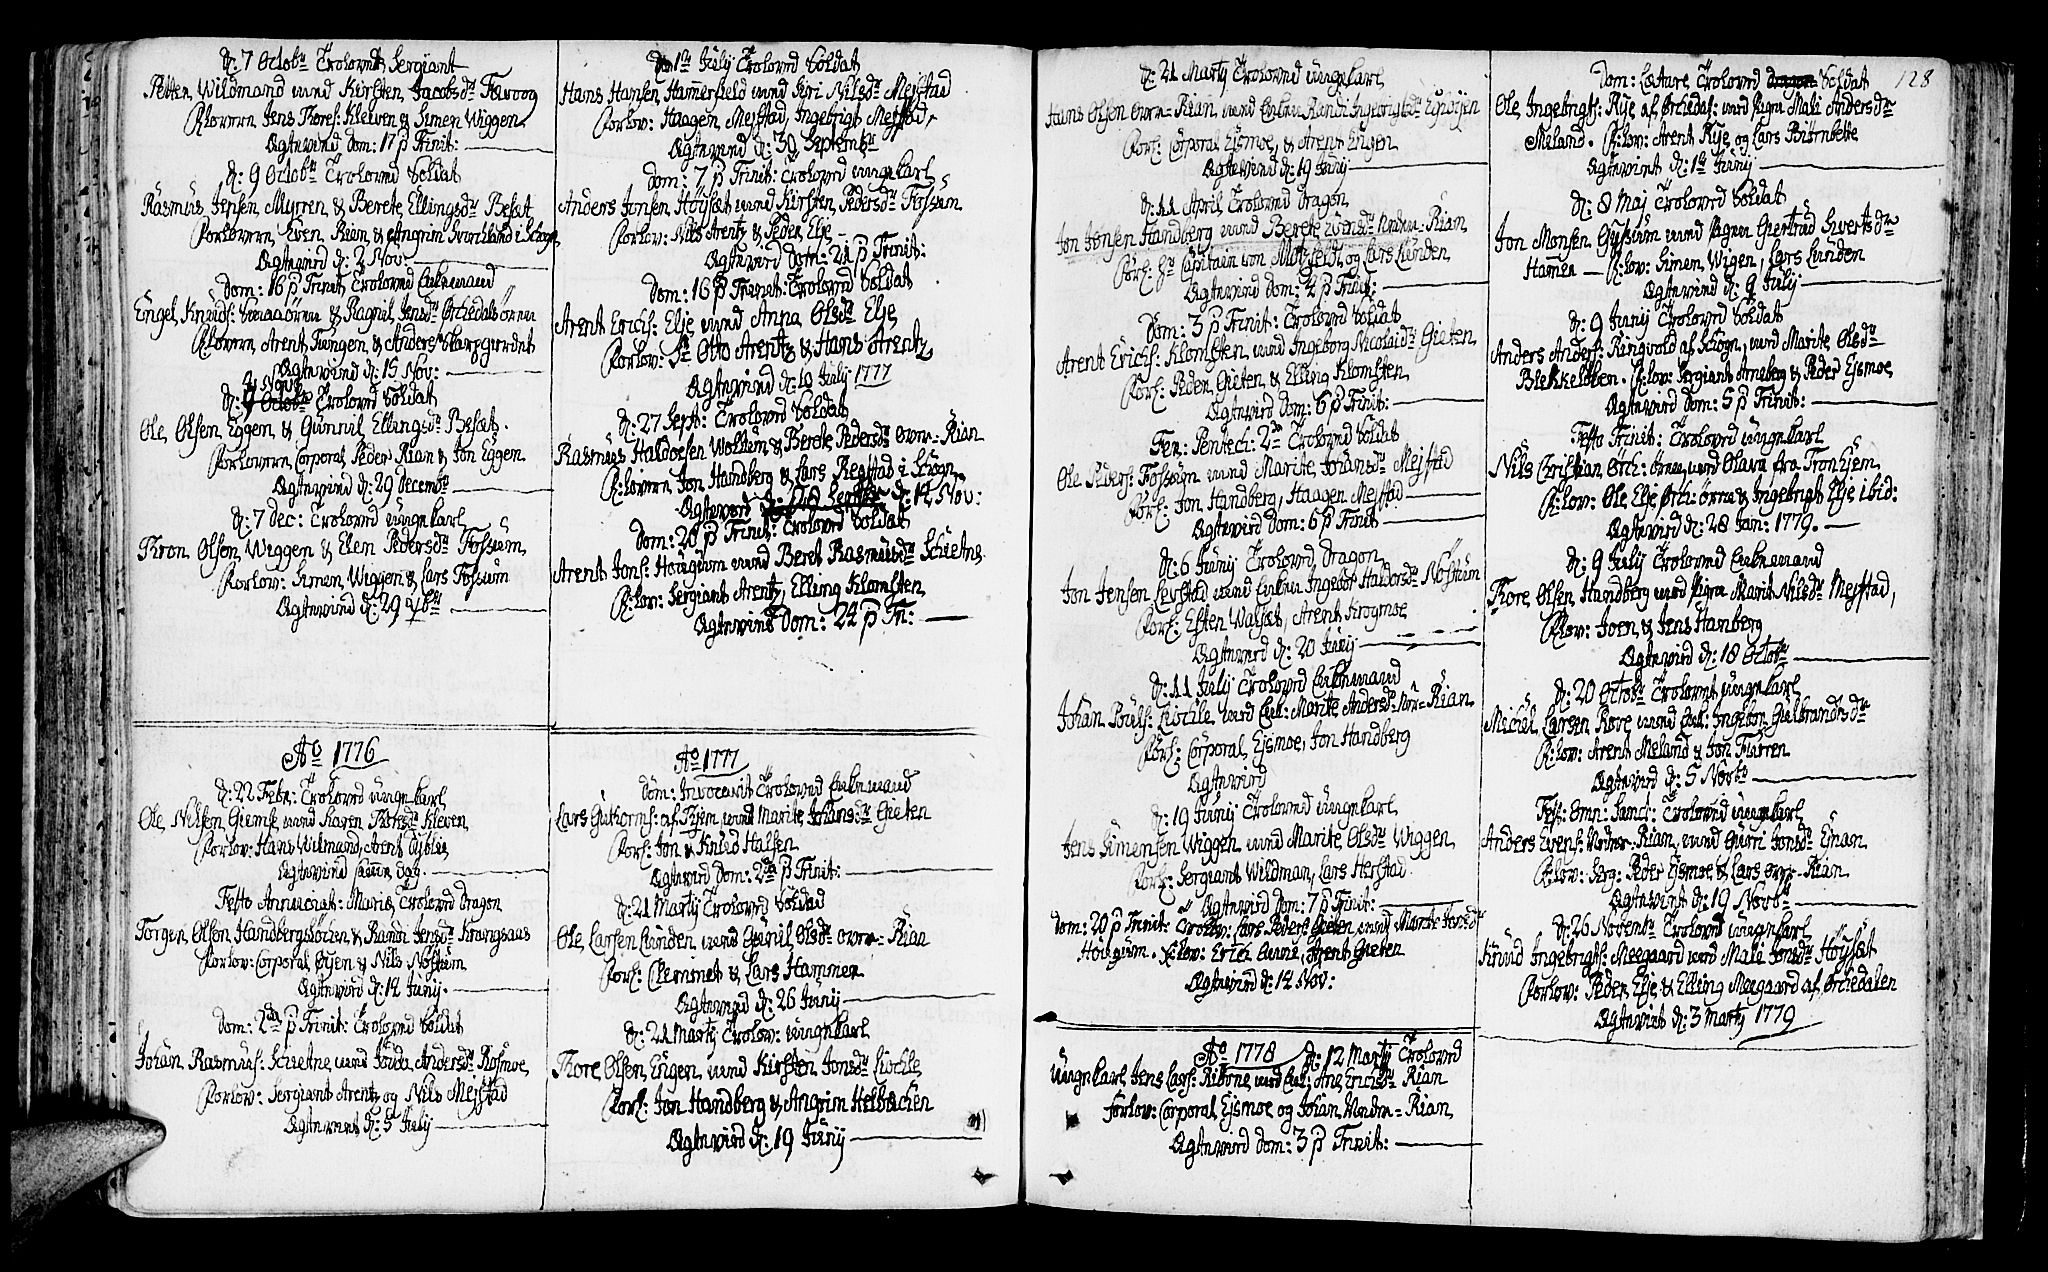 d: 7 Octobr Trolovet Sergiant
Petter Wildmand med Kirsten Jacobsdr
Forlovere Jens Kleven & Simen Wiggen
Egteviet dom: 17 p Trinit:
d: 9 Octobr Trolovet Soldat
Rasmus Jensen Myren & Berete Ellingsdr Besæt
Forlovere Even Rian & Angrim i Schogn
Egteviet d: 2 Nov:
Dom: 16 p Trinit Trolovet Enkemand
Engel Knuds: & Ragnil Jensdr
Forlovere Arent & Anders
Egteviet d: 15 Nov:
4 Nov:
d: Trolovet Soldat
Ole Olsen Eggen & Gunnil Ellingsdr Besæt.
Forlovere Corporal Peder Rian & Jon Eggen
Egteviet d: 29 Decembr
d: 7 Dec: Trolovet ungekarl
Tron Olsen Wiggen & Elen Pedersdr Fossum
Forlov: Simen Wiggen & Lars Fossum
Egteviet d: 29
Ao 1776
d: 22 Febr: Trolovet ungekarl
Ole Nilsen Gimse med Karen Kleven
Forlov: Hans Wilmand, Arent
Egteviet
Festo Annunciat: Mariæ Trolovet Dragon
Torger Olsen & Randi Jensdr Krangsaas
Forlov: Corporal Øyen & Nils Nostum
Egteviet d: 12 Junij.
Dom: 2da p Trinit: Trolovet Soldat
Johan Rasmus: Schietne med Andersdr Rosmoe
Forlov: Sergiant Arentz og Nils Mejstad
Egteviet d: 5 Julij
1te Julij Trolovet Soldat
Hans Hansen Hamerfield med Siri Nilsdr Mejstad
Forlov: Haagen Mejstad, Ingebrigt Mejstad,
Egteviet d: 30 Septembr
Dom: 7 p Trinit: Trolovet ungekarl
Anders Jonsen Høysæt med Kirsten Pedersdr Fossum
Forlov: Nils Arentz & Peder Elje
Egteviet dom: 21 p Trinit:
Dom: 16 p Trinit: Trolovet Soldat
Arent Erichs: Elje med Anna Olsdr Elje
Forlov: Sr Otto Arentz & Hans Arentz
Egteviet d: 10 Julij 1777
d: 27 Sept: Trolovet Soldat
Rasmus Haldorsen Wollum & Berete Pedersdr øvre-Rian
Forlovere Jon Handberg & Lars Regstad i Schogn
Egteviet d: 12 Nov:
Dom: 20 p Trinit: Trolovet Soldat
Arent Jons: Hougum med Beret Rasmusdr Schietne
Forlov: Sergiant Arentz, Elling Klomsten
Egteviet dom: 24 p Tr:
Ao 1777
Dom: Invocavit Trolovet Enkemand
Lars Guthorms: af Hjem med Marite Johansdr Gieten
Forl: Jon & Knud Halsen
Egteviet dom: 2da p Trinit:
d: 21 Martij Trolovet Soldad
Ole Larsen Lunden med Gunil Olsdr øvre-Rian
Forl: Clemmet & Lars Hammer
Egteviet d: 26 Junij
d: 21 Martij Trolov: ungekarl
Tore Olsen Engen med Kirsten Jonsdr Lockle
Forl: Jon Handberg & Angrim Helbachen
Egteviet d: 19 Junij
d: 21 Martij Trolovet ungekarl
Hans Olsen øvre-Rian med Enken Randi Ingebrigtsdr
Forl: Corporal Ejsmoe & Arent Engen
Egteviet d: 19 Junij
d: 11 April Trolovet Dragon
Jon Jonsen Handberg med Berete nedre-Rian
Forl: Hr Capitain von og Lars Lunden
Egteviet dom: 2 p Trinit:
Dom: 3 p Trinit: Trolovet Soldat
Arent Erichs: Klomsten med Ingeborg Nicolaidr Gieten
Forl: Peder Gieten & Elling Klomsten
Egteviet dom: 6 p Trinit:
Fer: Pentec: 2da Trolovet Soldat
Ole Peders: Fossum med Marite Johansdr Mejstad
Forl: Jon Handberg, Haagen Mejstad
Egteviet dom: 6 p Trinit
d: 6 Junij Trolovet Dragon
Jon Jensen Levstad med Enken Ingebor Haldorsdr Nostum
Forl: Esten Walsæt, Arent Krogmoe
Egteviet d: 20 Junij
d: 11 Julij Trolovet Enkemand
Johan Pouls: Lockle med Enk: Marite Andersdr Nor-Rian
Forl: Corporal Ejsmoe, Jon Handberg
Egteviet
d: 19 Junij Trolovet ungekarl
Jens Simensen Wiggen med Marite Olsdr Wiggen
Forl: Sergiant Wildman, Lars Herstad
Egteviet dom: 7 p Trinit:
Dom: 20 p Trinit: Trolov: Lars Peders: Gieten med Marite
Hougum. F:lov: Erich Arent Gieten
Egteviet d: 12 Nov:
Ao 1778 d: 12 Martij Trolovet
ungekarl Jens Lars: med Enk: Ane Erichsdr Rian
Forlov: Corporal Ejsmoe og Johan Nedre-Rian
Egteviet dom: 3 p Trinit:
128
Dom: Lætare Trolovet Soldat
Ole Ingebrigts: Rye af Ørchedal: med Pigen Mali Andersdr
Meland. F:lov: Arent Rye og Lars Biørnbette
Egteviet d: 1te Junij
d: 8 Maj Trolovet Soldat
Jon Monsen med Pigen Giertrud Sivertsdr
Hamer — F:lov: Simen Wigen, Lars Lunden
Egteviet d: 9 Julij
d: 9 Junij Trolovet Soldat
Anders Anders: Ringvold af Schogn, med Marite Olsdr
F:lov: Sergiant Arneberg & Peder Ejsmoe
Egteviet dom: 5 p Trinit:
Festo Trinit: Trolovet ungekarl
Nils Christian Ørch: med Olava fra Tronhjem
F:lov: Ole Elje & Ingebrigt Elje ibid:
Egteviet d: 28 Jan: 1779.
d: 9 Julij Trolovet Enkemand
Tore Olsen Handberg med Pigen Marit Nilsdr Mejstad,
F:lov: Joen & Jens Hanberg
Egteviet d: 18 Octobr
d: 20 Octobr Trolovet ungekarl
Michel Larsen Rore med Enk: Ingebor Gulbrandsdr
F:lov: Arent Meland & Jon
Egteviet d: 5 Novbr
Fest: Omn: Sanct: Trolovet ungekarl
Anders Evens: Nedre-Rian med Guri Jonsdr
F:lov: Serg: Peder Ejsmoe & Lars øvre-Rian
Egteviet d: 19 Novbr
d: 26 Novembr Trolovet ungekarl
Knud Ingebrigts: Meegaard med Mali Jonsdr Høysæt
Forlov: Peder Elje & Elling Meegaard af Ørchedalen
Egteviet d: 3 Martij 1779